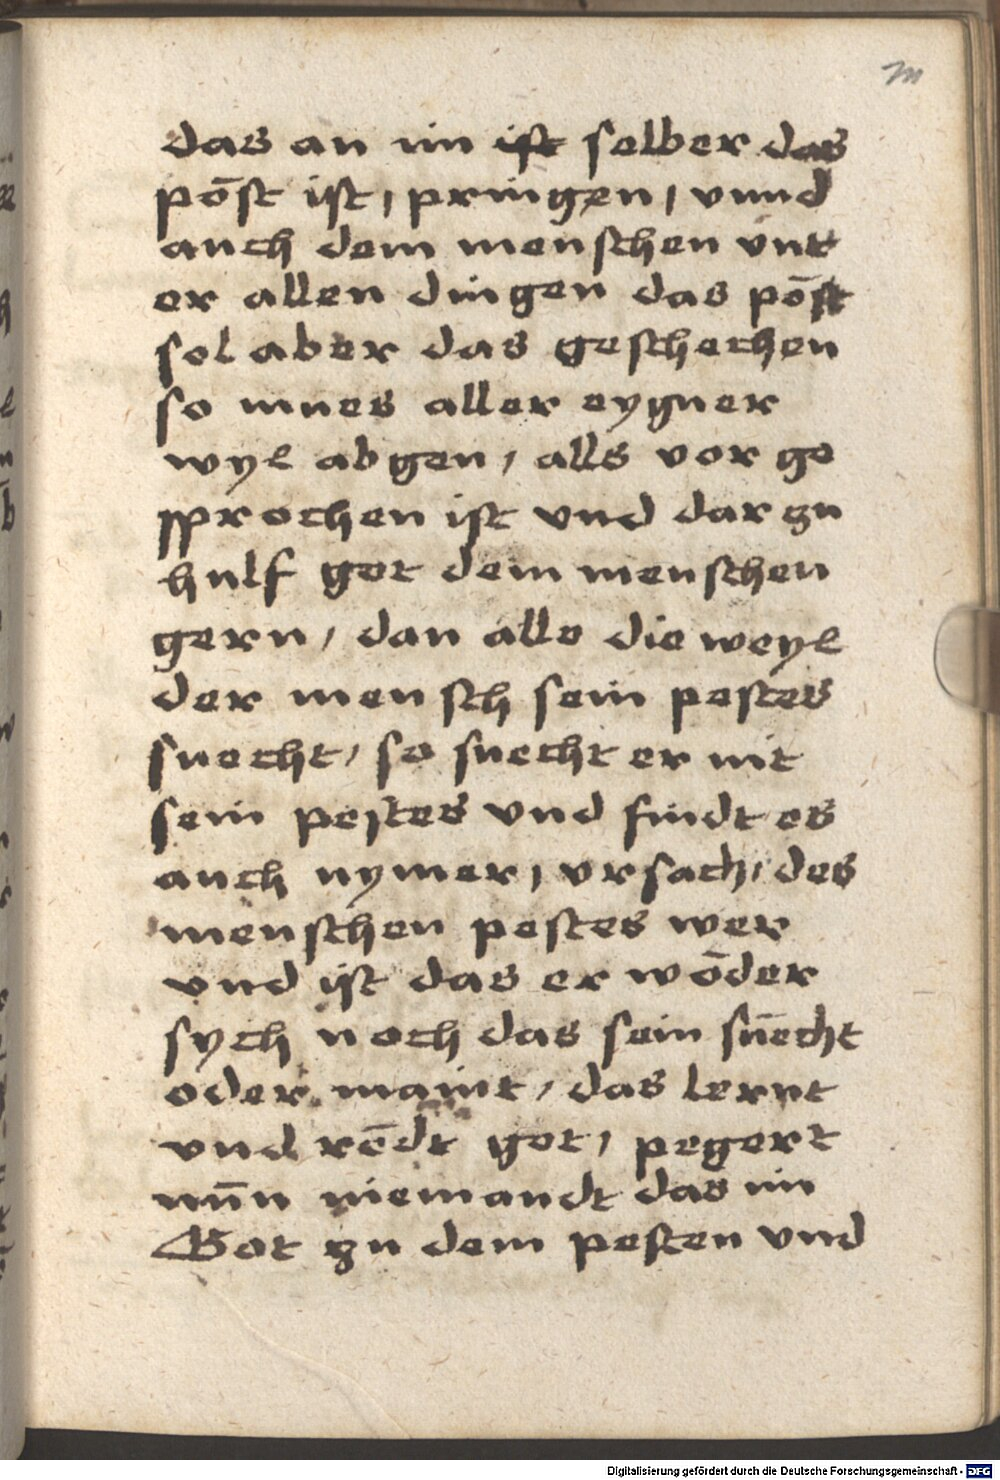 m
das an im ist selber das
pōst ist, pringen, vnnd
auch dem menschen vnt
er allen dingen das pōst
sol aber das geschechen
so mues aller eygner
wyl abgen, alls vor ge
sprochen ist vnd dar zu
hulf got dem menschen
gern, dan alle die weyl
der mensch sein pestes
suecht, so suecht er nit
sein pestes vnd findt es
auch nymer, vrsach, des
menschen pestes wer
vnd ist das er wōder
sych noch das sein sūecht
oder maint, das lernt
vnd rēdt got, pegert
nūn niemandt das im
Got zu dem pesten vnd
Digitalisierung gefördert durch die Deutsche Forschungsgemeinschaft - DFG